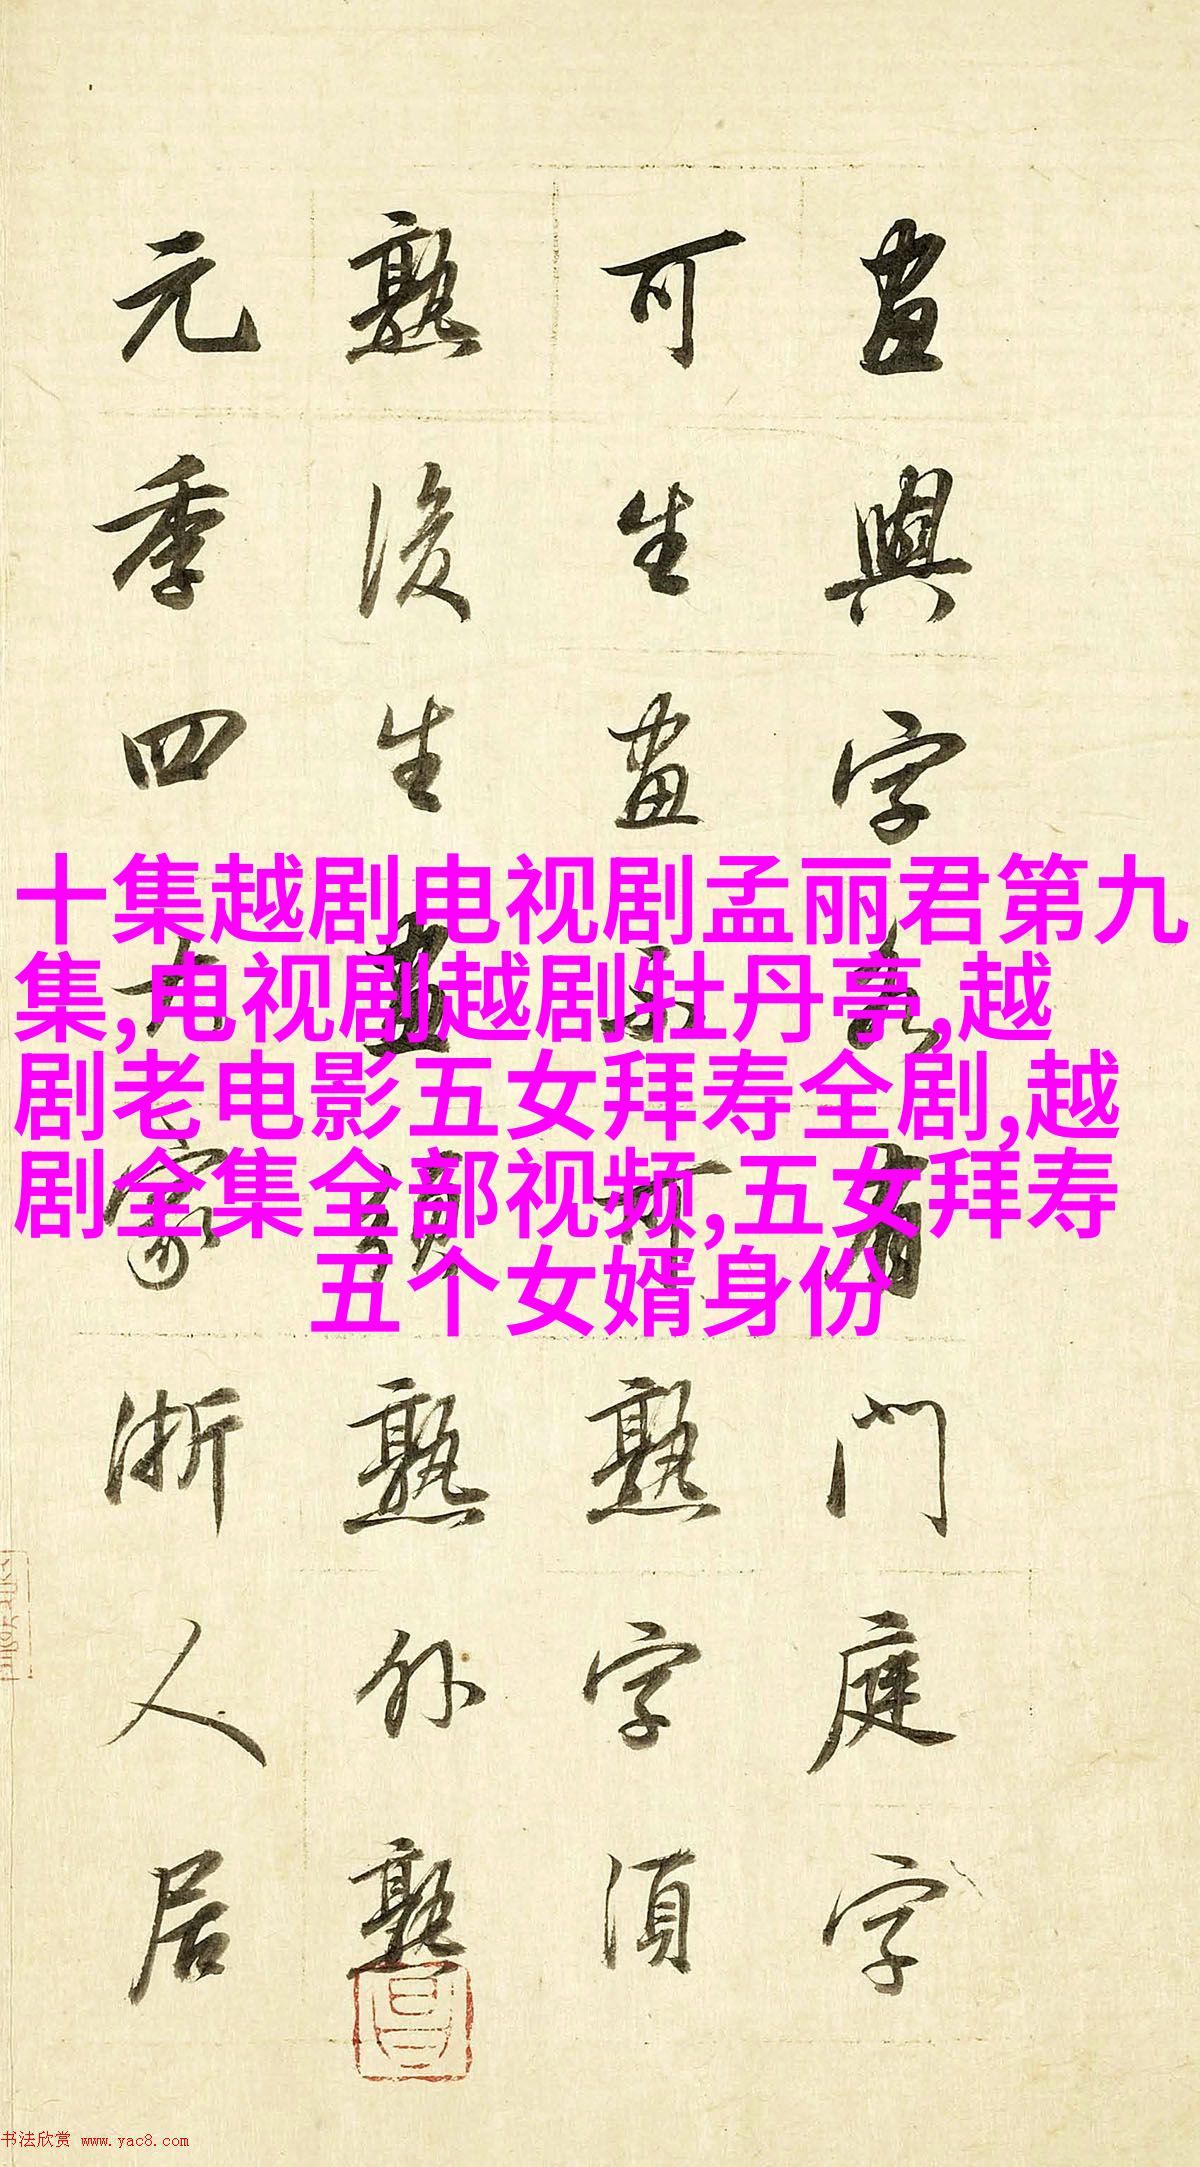 畫與字各有門庭字
可生畫不可熟字須
熟後生畫須熟外熟
元季四大家浙人居
十集越剧电视剧孟丽君第九
集,电视剧越剧牡丹亭,越
剧老电影五女拜寿全剧,越
剧全集全部视频,五女拜寿
五个女婿身份
书法欣赏 www.yac8.com